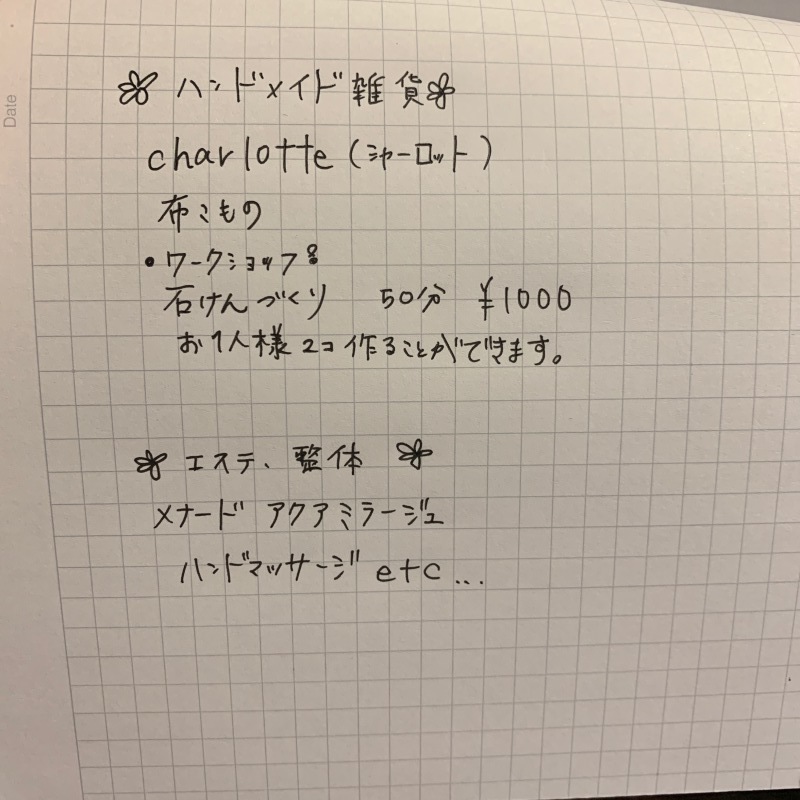 Date
ハンドメイド雑貨
charlotte (シャーロット)
布こもの
・ワークショップ
石けんづくり 50分 ¥1000
お1人様 2コ 作ることができます。
エステ、整体
メナード アクアミラージュ
ハンドマッサージ etc...